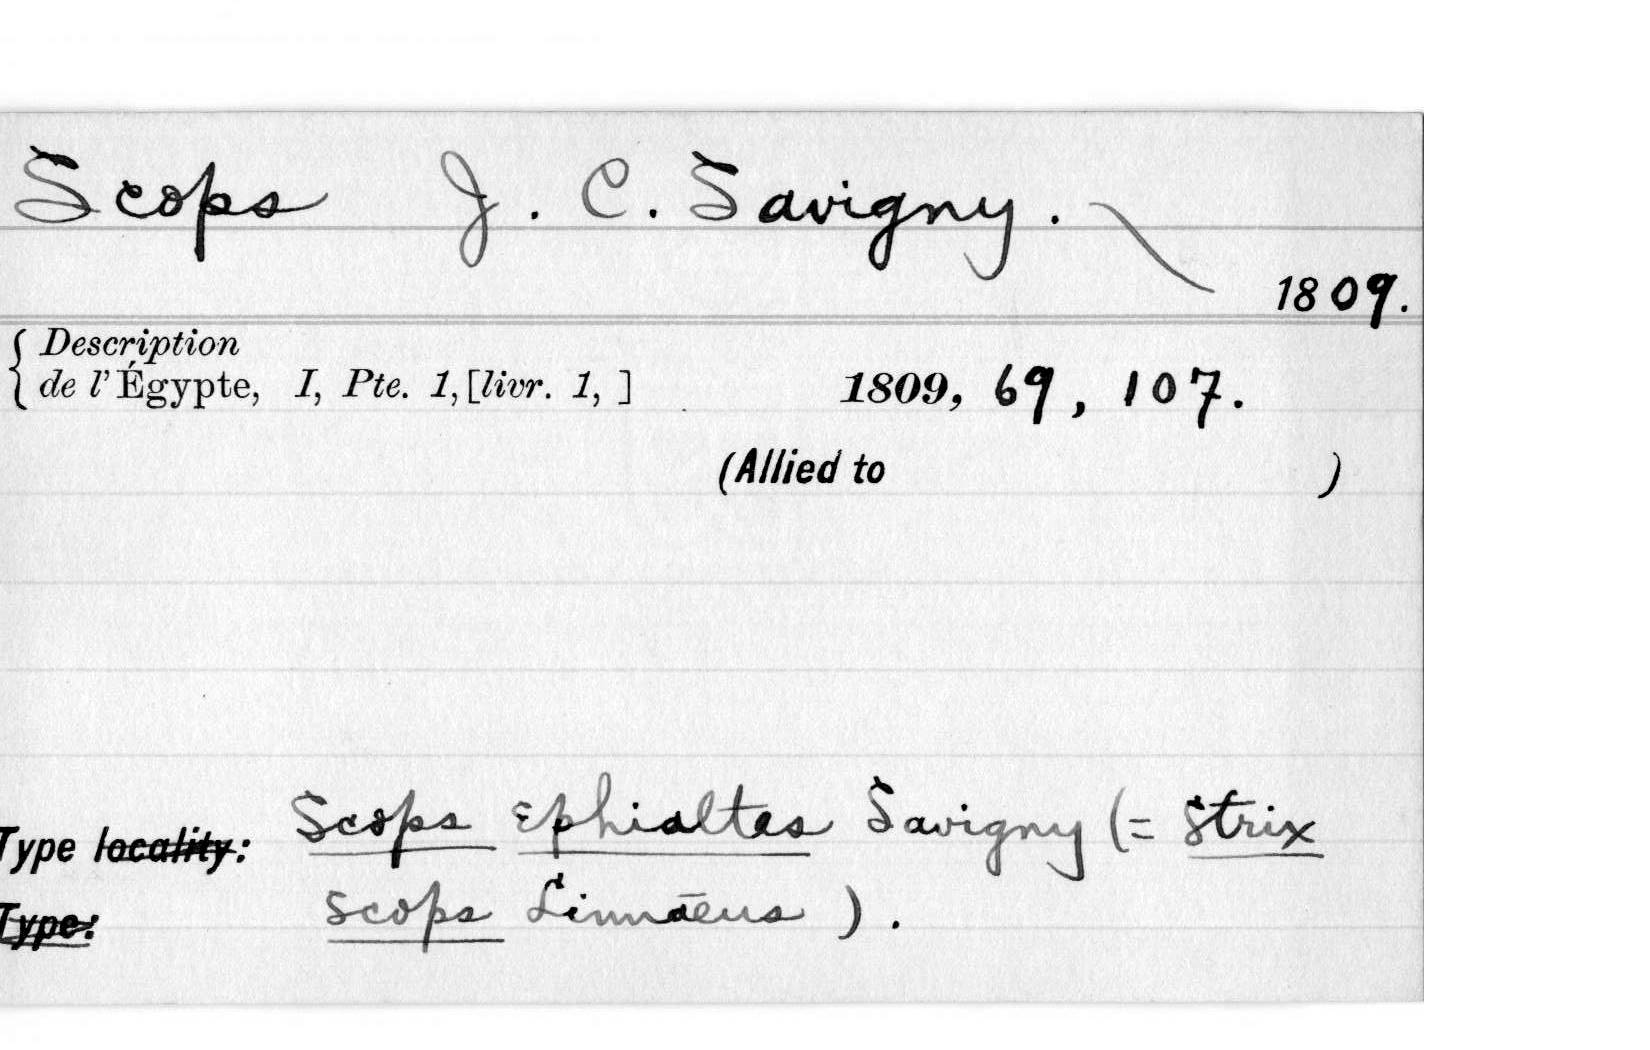 Scops J. C. Savigny.
1809.
Description
de l'Égypte, I, Pte. 1, [livr. 1, ] 1809, 69, 107.
(Allied to )
Type locality: Scops Ephialtes Savigny (= Strix
Type: scops Linnaeus).